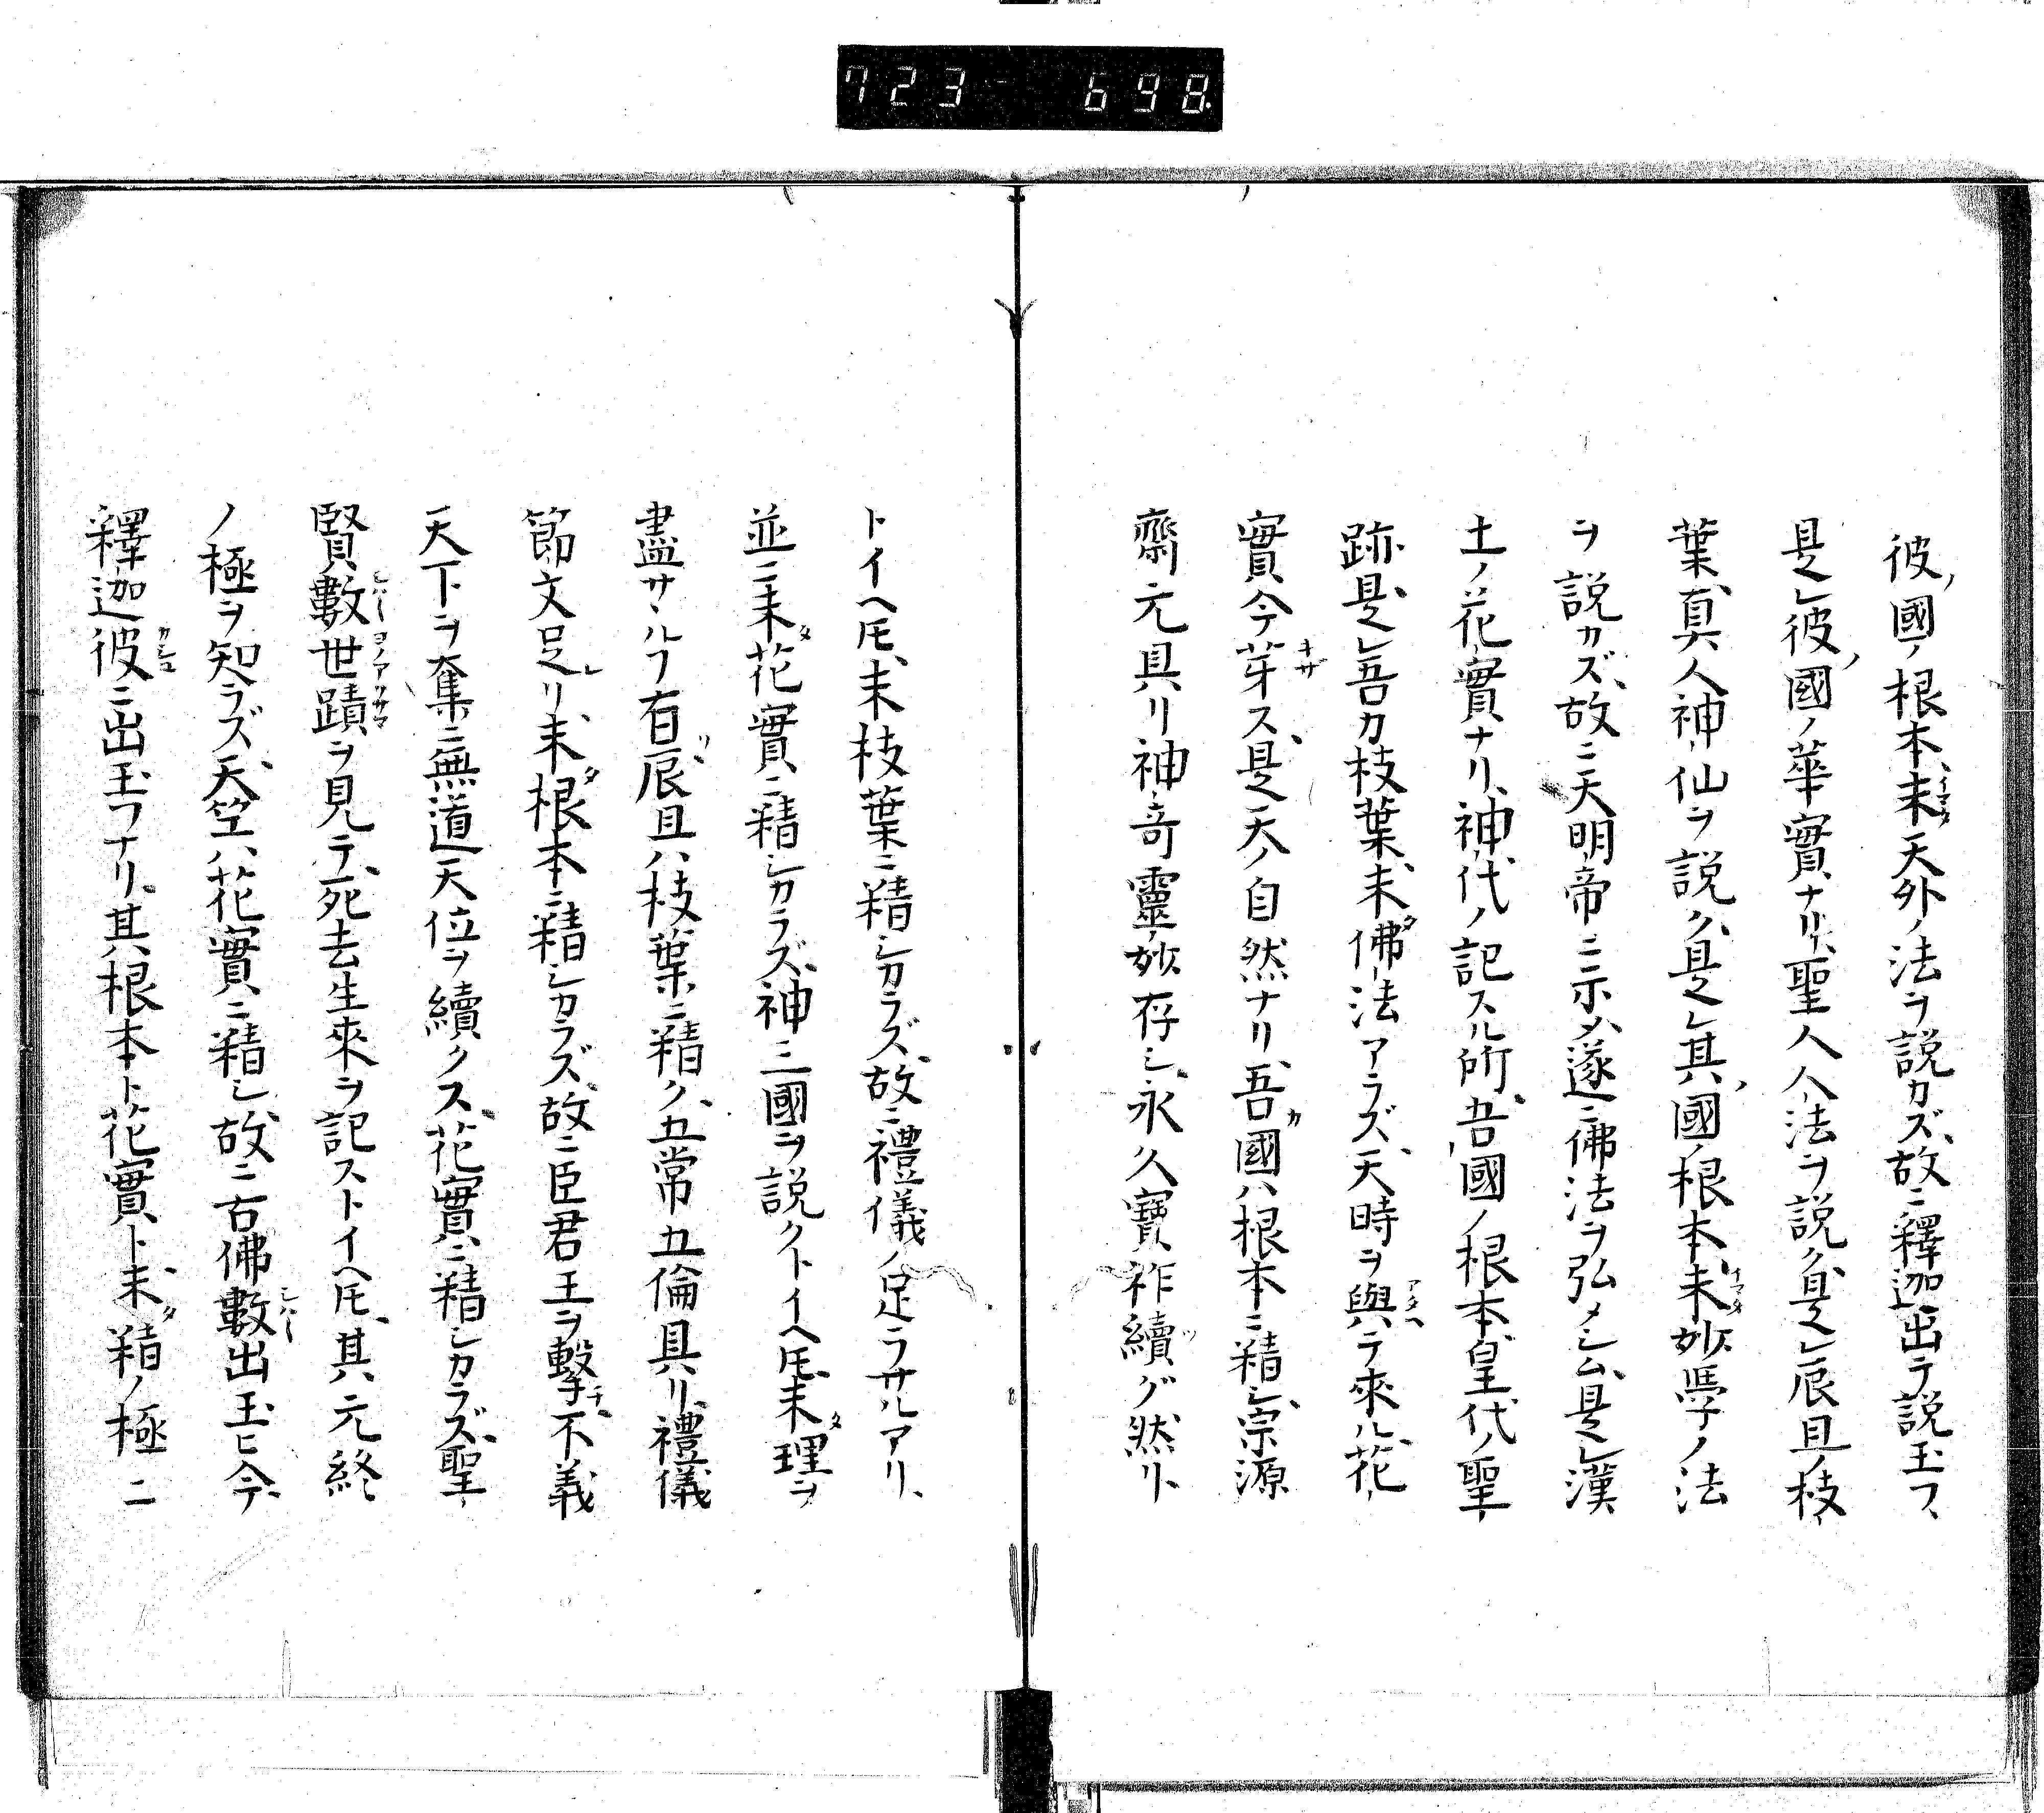 723 698.
彼ノ國ノ根本、未イマタ天外ノ法ヲ説カズ、故ニ釋迦出テ説玉フ、
是レ彼ノ國ノ華實ナリ、聖人人法ヲ説ク、是レ辰旦ノ枝
葉、眞人神仙ヲ説ク、是レ其ノ國ノ根本、未イマタ妙學ノ法
ヲ説カズ、故ニ天明帝ニ示メ、遂ニ佛法ヲ弘メシム、是レ漢
土ノ花實ナリ、神代ノ記スル所、吾國ノ根本、皇代ノ聖
跡、是レ吾カ枝葉、未タ佛法アラズ、天時ヲ與アタヘテ來ル、花
實今芽キサス、是天ノ自然ナリ、吾カ國ハ根本ニ精シ、宗源
齋元具リ神奇靈妙存シ、永久寶祚續ツグ然リ
トイヘ𪜈、末枝葉ニ精シカラズ、故ニ禮儀ノ足ラサルアリ、
並ニ未タ花實ニ精シカラズ、神三國ヲ説クトイヘ𪜈、未タ理ヲ
盡サヽルフ有リ、辰旦ハ枝葉ニ精ク、五常五倫具リ、禮儀
節文足レリ、未タ根本ニ精シカラズ、故ニ臣君王ヲ擊チ、不義
天下ヲ奪ニ無道天位ヲ續クス、花實ニ精シカラズ、聖
賢數シハ〳〵世蹟ヨノアリサマヲ見テ、死去生來ヲ記ストイヘ𪜈、其元終
ノ極ヲ知ラズ、天竺ハ花實ニ精シ、故ニ古佛數シハ〳〵出玉ヒ今、
釋迦彼カシコニ出玉フナリ、其根本ト花實ト、未タ精ノ極ニ